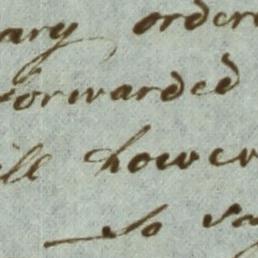 ary order
forwarded
ill howev
So say